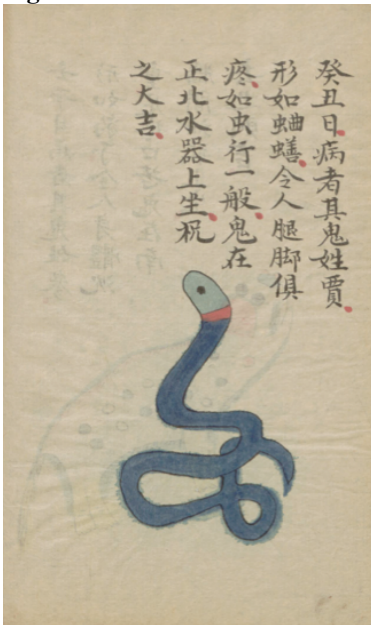 癸丑日病者其鬼姓賈
形如蛐蟮令人腿脚俱
疼如虫行一般鬼在
正北水器上坐祝
之大吉